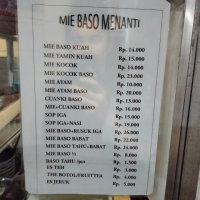 MIE BASO MENANTI
MIE BASO KUAH Rp. 14.000
MIE YAMIN KUAH Rp. 15.000
MIE KOCOK Rp. 14.000
MIE KOCOK BASO Rp. 23.000
MIE AYAM Rp. 10.000
MIE AYAM BASO Rp. 20.000
CUANKI BASO Rp. 13.000
MIE+CUANKI BASO Rp. 16.000
SOP IGA Rp. 21.000
SOP IGA+NASI Rp.
MIE BASO+RUSUK IGA Rp. 26.000
MIE BASO BABAT Rp. 22.000
MIE BASO TAHU+BABAT Rp. 24.000
MIE BASO ½ Rp. 9.000
BASO TAHU 1pcs Rp.
ES TEH Rp. 3.000
THE BOTOL/FRUITTEA Rp. 4.000
ES JERUK Rp. 5.000